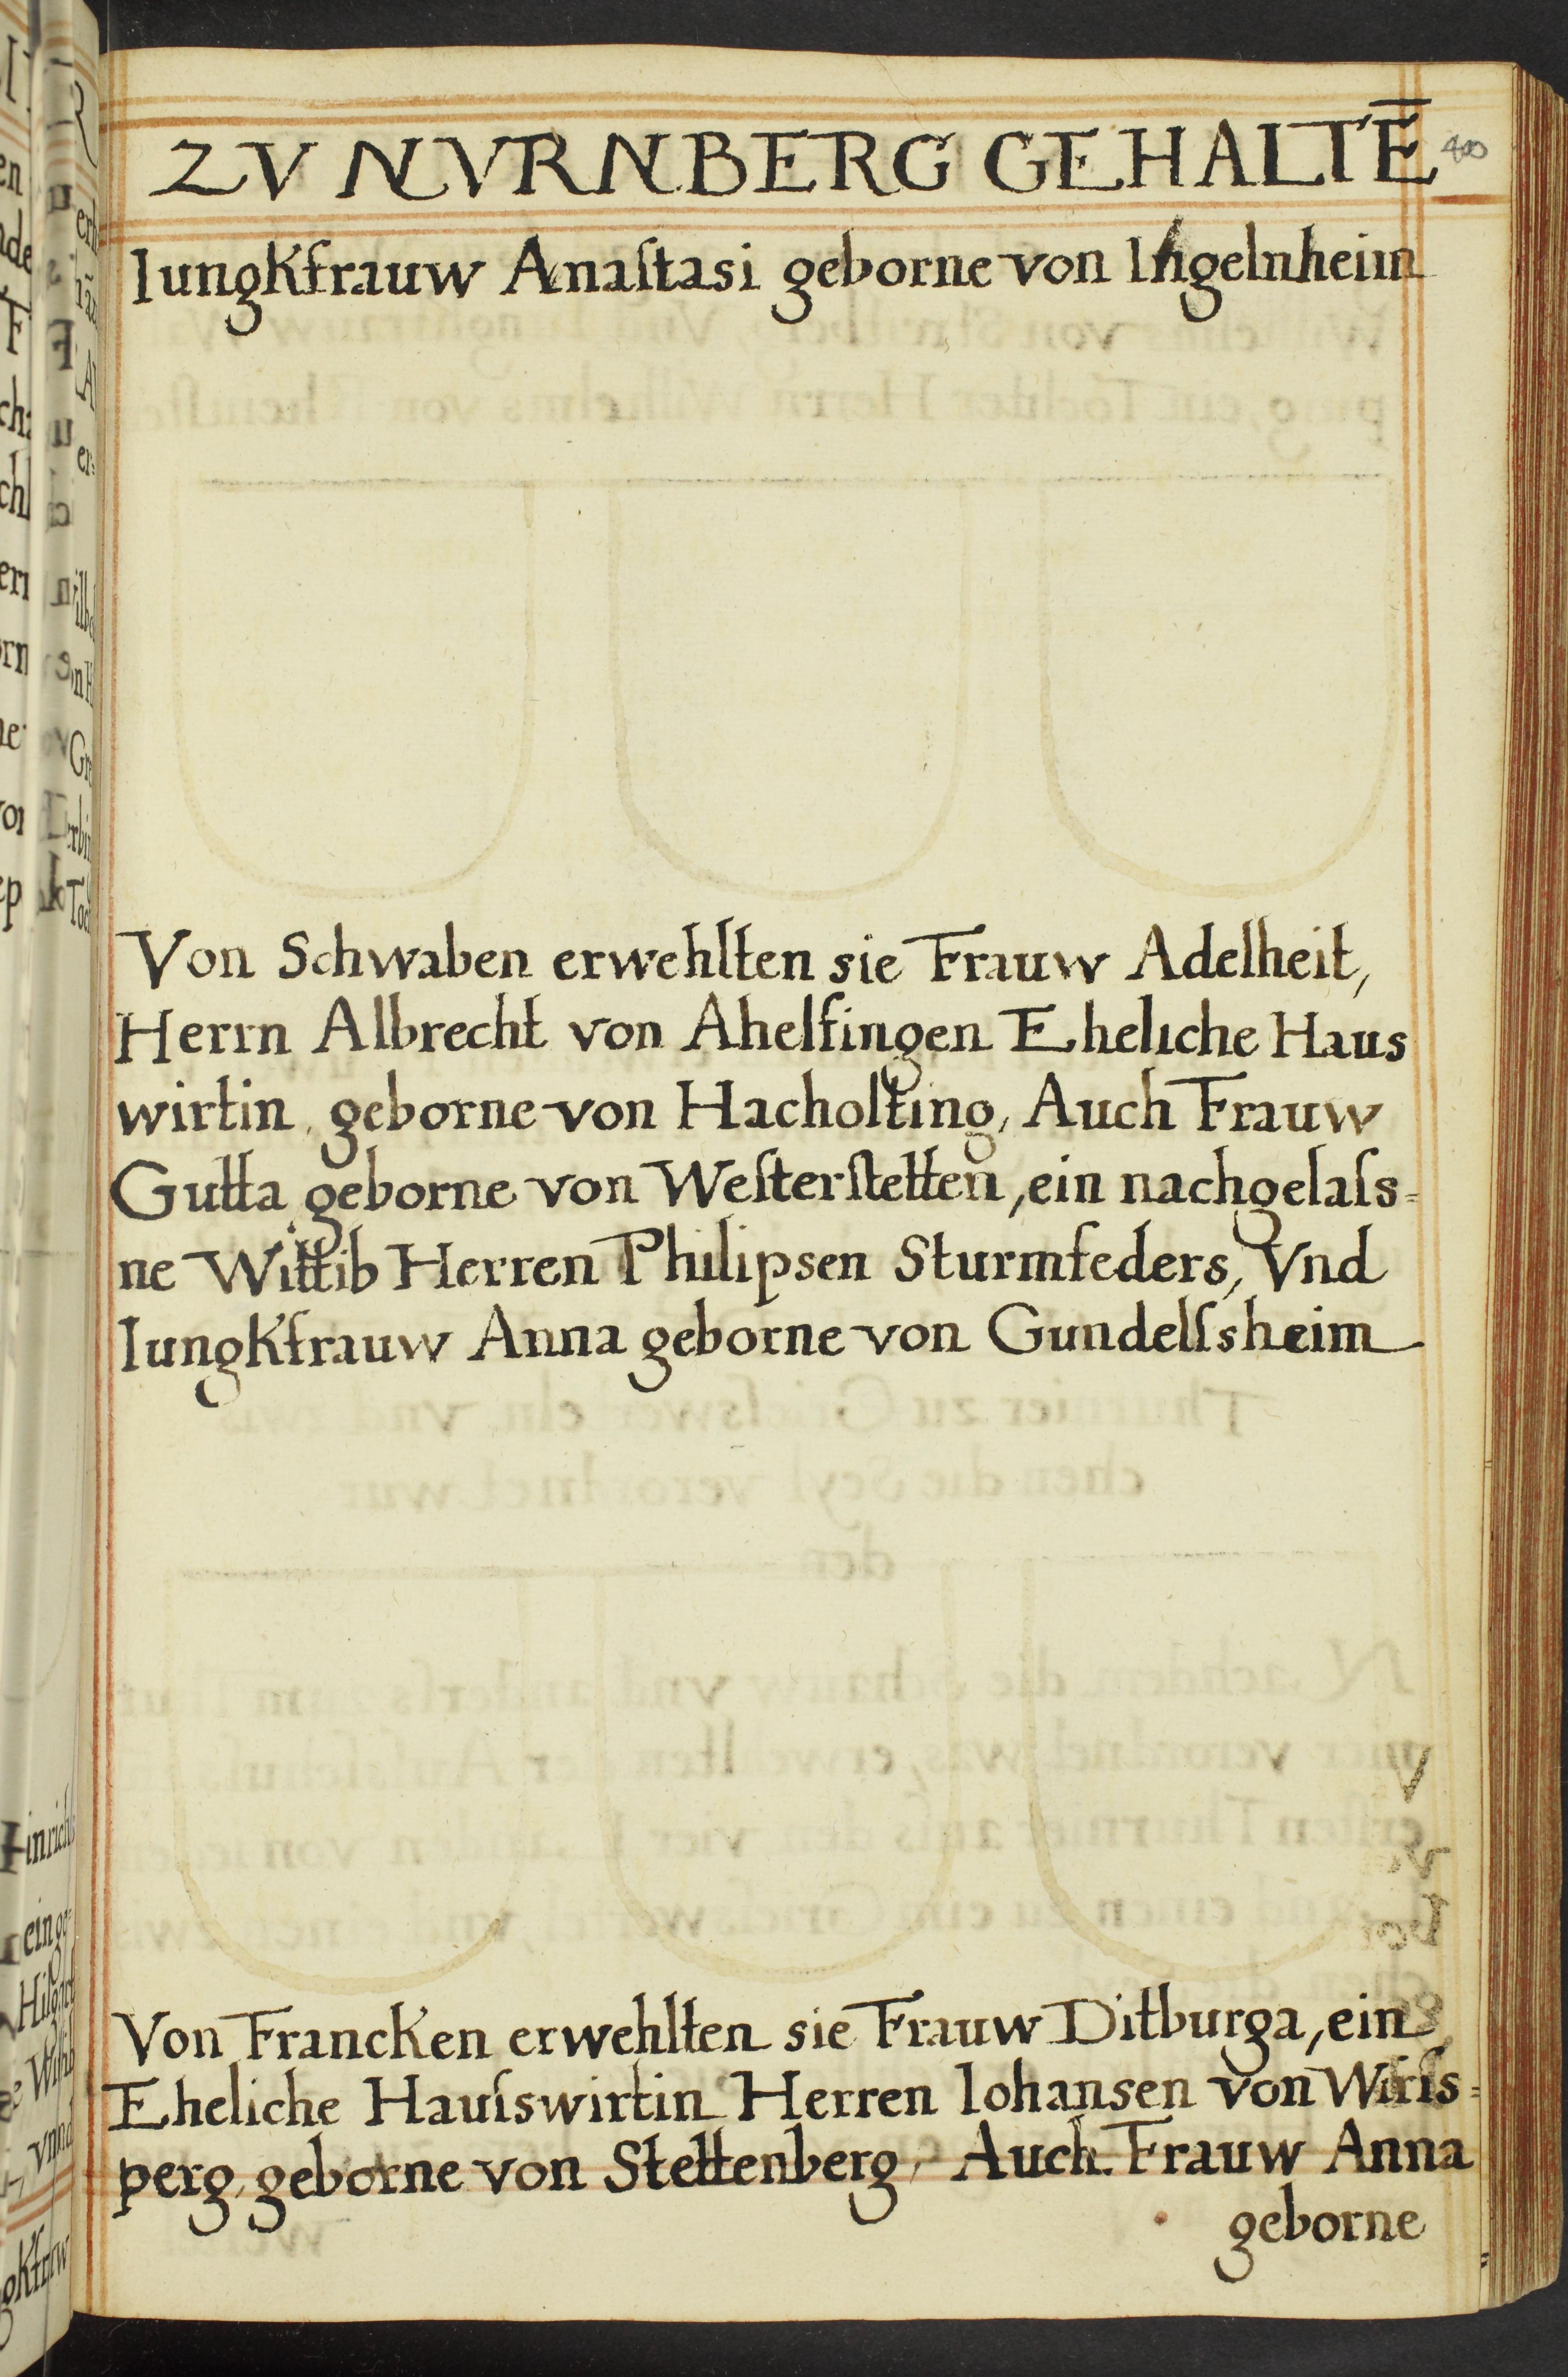 ZV NVRNBERG GEHALTĒ
400
Iungkfrauw Anaſtasi geborne von Ingelnheim
Von Schwaben erwehlten sie Frauw Adelheit,
Herrn Albrecht von Ahelfingen Eheliche Haus
wirtin, geborne von Hacholting, Auch Frauw
Gutta geborne von Weſterſtetten, ein nachgelaſs=
ne Wittib Herren Philipsen Sturmfeders, Vnd
Iungkfrauw Anna geborne von Gundelſsheim
Von Francken erwehlten sie Frauw Ditburga, ein
Eheliche Hauſswirtin Herren Iohansen von Wirſs=
perg, geborne von Stettenberg, Auch Frauw Anna
geborne